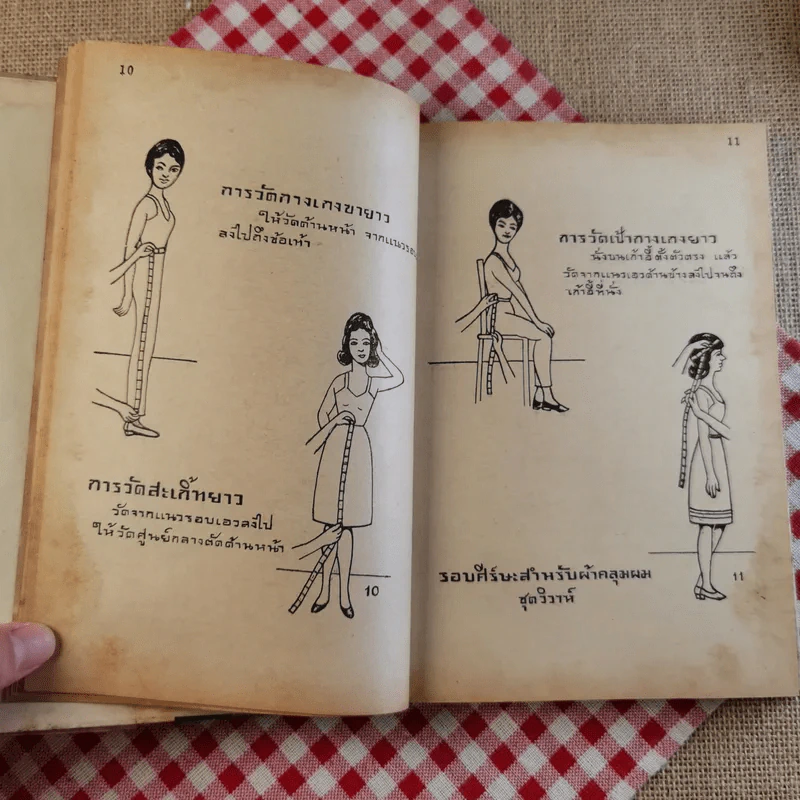 10
การวัดกางเกงขายาว
ให้วัดด้านหน้า จากแนวรอบ
ลงไปถึงข้อเท้า
การวัดสะเกิ้ทยาว
วัดจากแนวรอบเอวลงไป
ให้วัดศูนย์กลางตัดด้านหน้า
10
11
การวัดเป้ากางเกงยาว
นั่งบนเก้าอี้ตั้งตัวตรง แล้ว
วัดจากแนวเอวด้านข้างลงไปจนถึง
เก้าอี้ที่นั่ง
รอบศีร์ษะสำหรับผ้าคลุมผม
ชุดวิวาห์
11